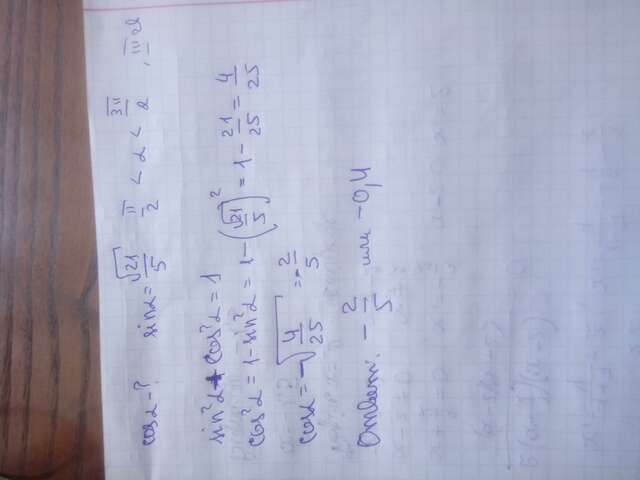 cos α - ? sin α = √21/5 π/2 < α < 3π/2 , III
sin²α + cos²α = 1
cos²α = 1 - sin²α = 1 - (√21/5)² = 1 - 21/25 = 4/25
cos α = -√4/25 = -2/5
Ответ: -2/5 или -0,4